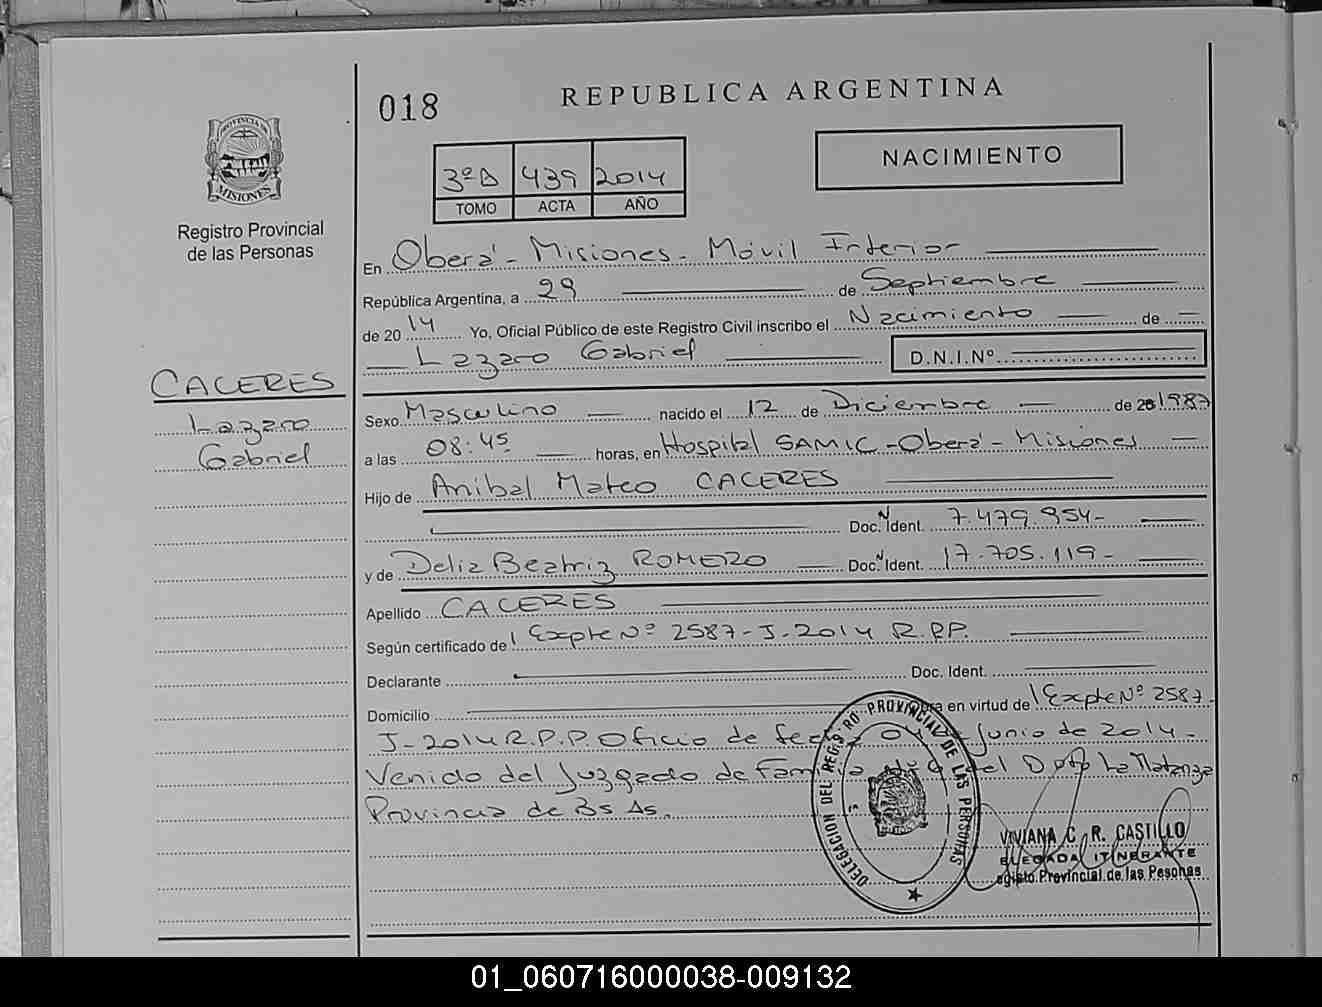 018
REPUBLICA ARGENTINA
PROVINCIA DE
MISIONES
Registro Provincial
de las Personas
3º D 439 2014
TOMO ACTA AÑO
NACIMIENTO
En Oberá - Misiones - Móvil Interior
República Argentina, a 29 de Septiembre
de 20 14 Yo, Oficial Público de este Registro Civil inscribo el Nacimiento de
Lazaro Gabriel D.N.I.Nº
CACERES
Lazaro
Gabriel
Sexo Masculino nacido el 12 de Diciembre de 1987
a las 08:45 horas, en Hospital SAMIC - Oberá - Misiones
Hijo de Anibal Mateo CACERES
Doc. Ident. 7.479.954-
y de Delia Beatriz ROMERO Doc. Ident. 17.705.119-
Apellido CACERES
Según certificado de Expte Nº 2587-J-2014 R.P.P.
Declarante Doc. Ident.
Domicilio en virtud de Expte Nº 2587-
J-2014 R.P.P. Oficio de Junio de 2014-
Venido del Juzgado de Dpto La Matanza
Provincia de Bs As.
DELEGACION DEL REGISTRO PROVINCIAL DE LAS PERSONAS
VIVIANA C. R. CASTILLO
ELEGADA ITINERANTE
egisto Provincial de las Pesonas
01_060716000038-009132